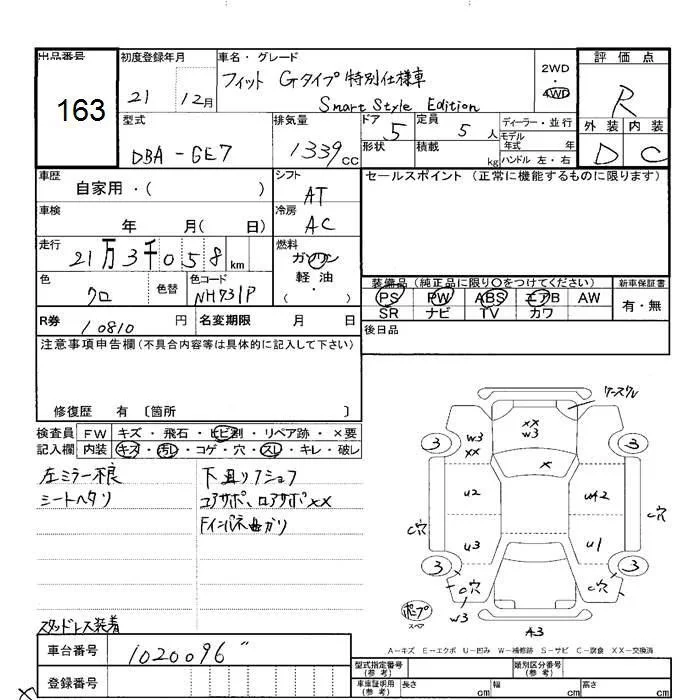 出品番号 163
初度登録年月 21 12月
車名・グレード フィット Gタイプ 特別仕様車
Smart Style Edition
2WD
・
4WD
評価点
R
外装 内装
D C
型式 DBA-GE7
排気量 1339 CC
ドア 5
形状
定員 5 人
積載 kg
ディーラー・並行
モデル年式 年
ハンドル 左・右
車歴 自家用・( )
シフト AT
セールスポイント (正常に機能するものに限ります)
車検 年 月( 日)
冷房 AC
走行 21万3千058 km
燃料 ガソリン
軽油
( ・ )
色 クロ
色替
色コード NH731P
装備品 (純正品に限り○をつけてください)
新車保証書
PS PW ABS エアB AW
SR ナビ TV カワ
有・無
R券 10810 円
名変期限 月 日
後日品
注意事項申告欄(不具合内容等は具体的に記入して下さい)
修復歴 有 〔箇所 〕
検査員
記入欄
FW キズ・飛石・ヒビ割・リペア跡・×要
内装 キズ・汚レ・コゲ・穴・スレ・キレ・破レ
左ミラー不良
シートヘタリ
下廻りフショク
コアサポ、ロアサポXX
Fインパネ曲がり
スタッドレス装着
ケースワレ
XX
W3
W3
XX
X
3
3
U2
U42
C穴
C穴
U3
U1
3
3
C穴
C穴
W3
スペア
A3
A-キズ E-エクボ U-凹み W-補修跡 S-サビ C-腐食 XX-交換済
車台番号 1020096"
登録番号
型式指定番号
(参考)
類別区分番号
(参考)
車庫証明用
(参考)
長さ cm
幅 cm
高さ cm
X